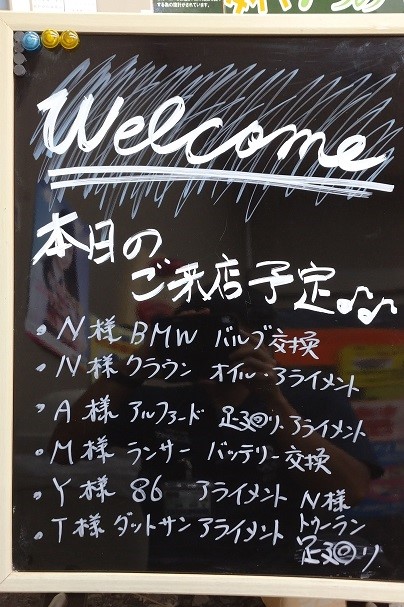 Welcome
本日の
ご来店予定♪♫
・N様 BMW バルブ交換
・N様 クラウン オイル・アライメント
・A様 アルファード 足回り・アライメント
・M様 ランサー バッテリー交換
・Y様 86 アライメント
・T様 ダットサン アライメント
N様
トゥーラン
足回り